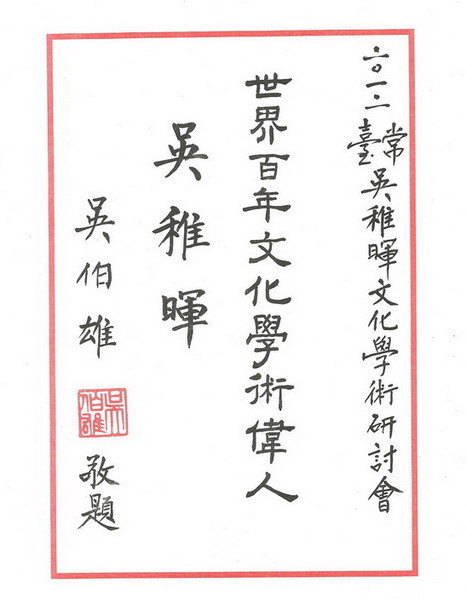 二〇一二常臺吳稚暉文化學術研討會
世界百年文化學術偉人
吳稚暉
吳伯雄
吳伯雄
敬題